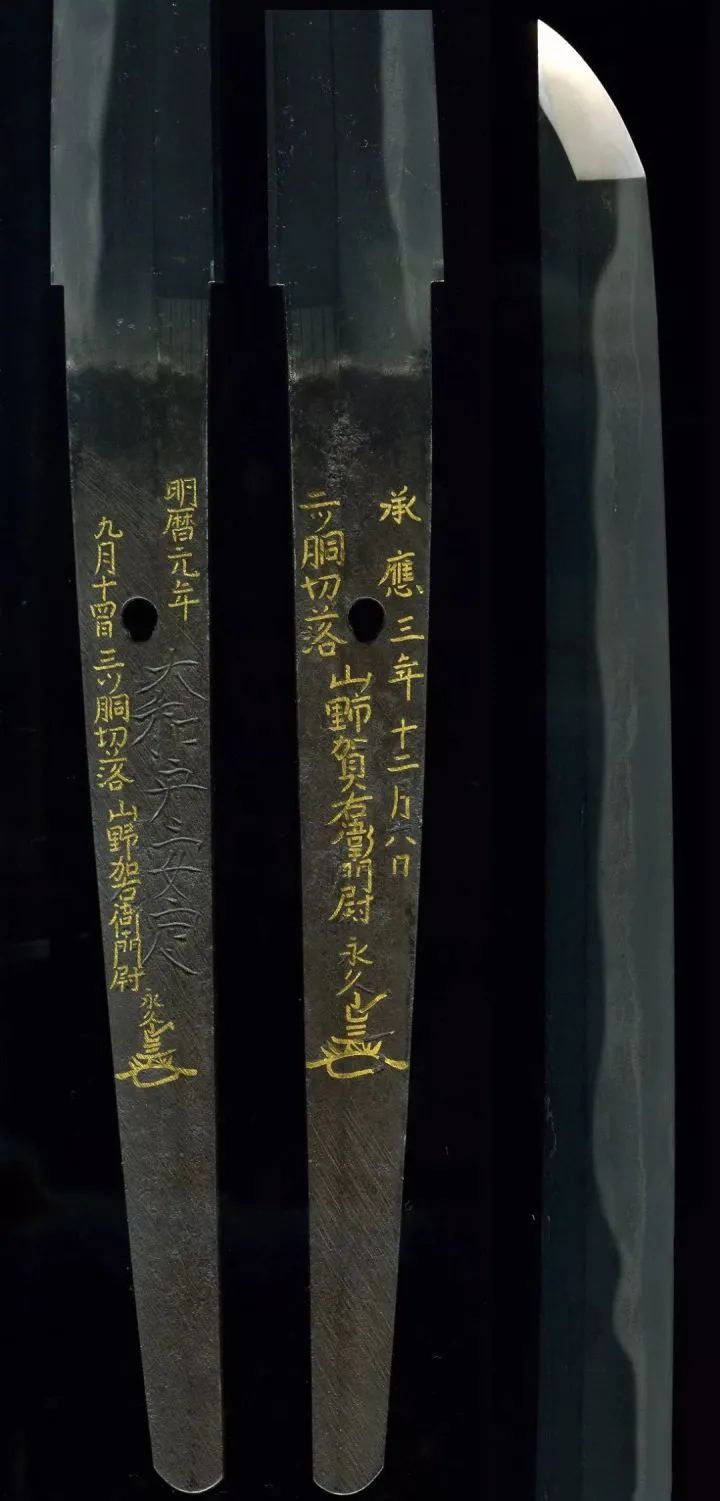 明暦元年
大和守安定
九月十四日 三ツ胴切落 山野加右衛門尉 永久
承應三年十二月八日
二ツ胴切落 山野賀右衛門尉 永久